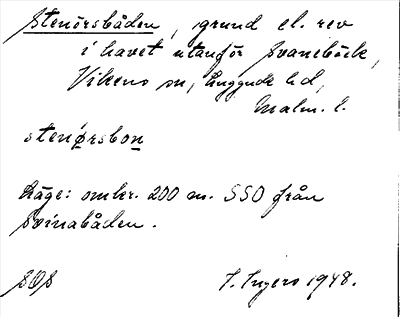 Stenörsbåden, grund el. rev
i havet utanför Svanebäck,
Vikens sn, Luggude hd,
Malm. l.
stenørsbon
Läge: omkr. 200 m. SSO från
Svinabåden.
SOS I. Ingers 1948.